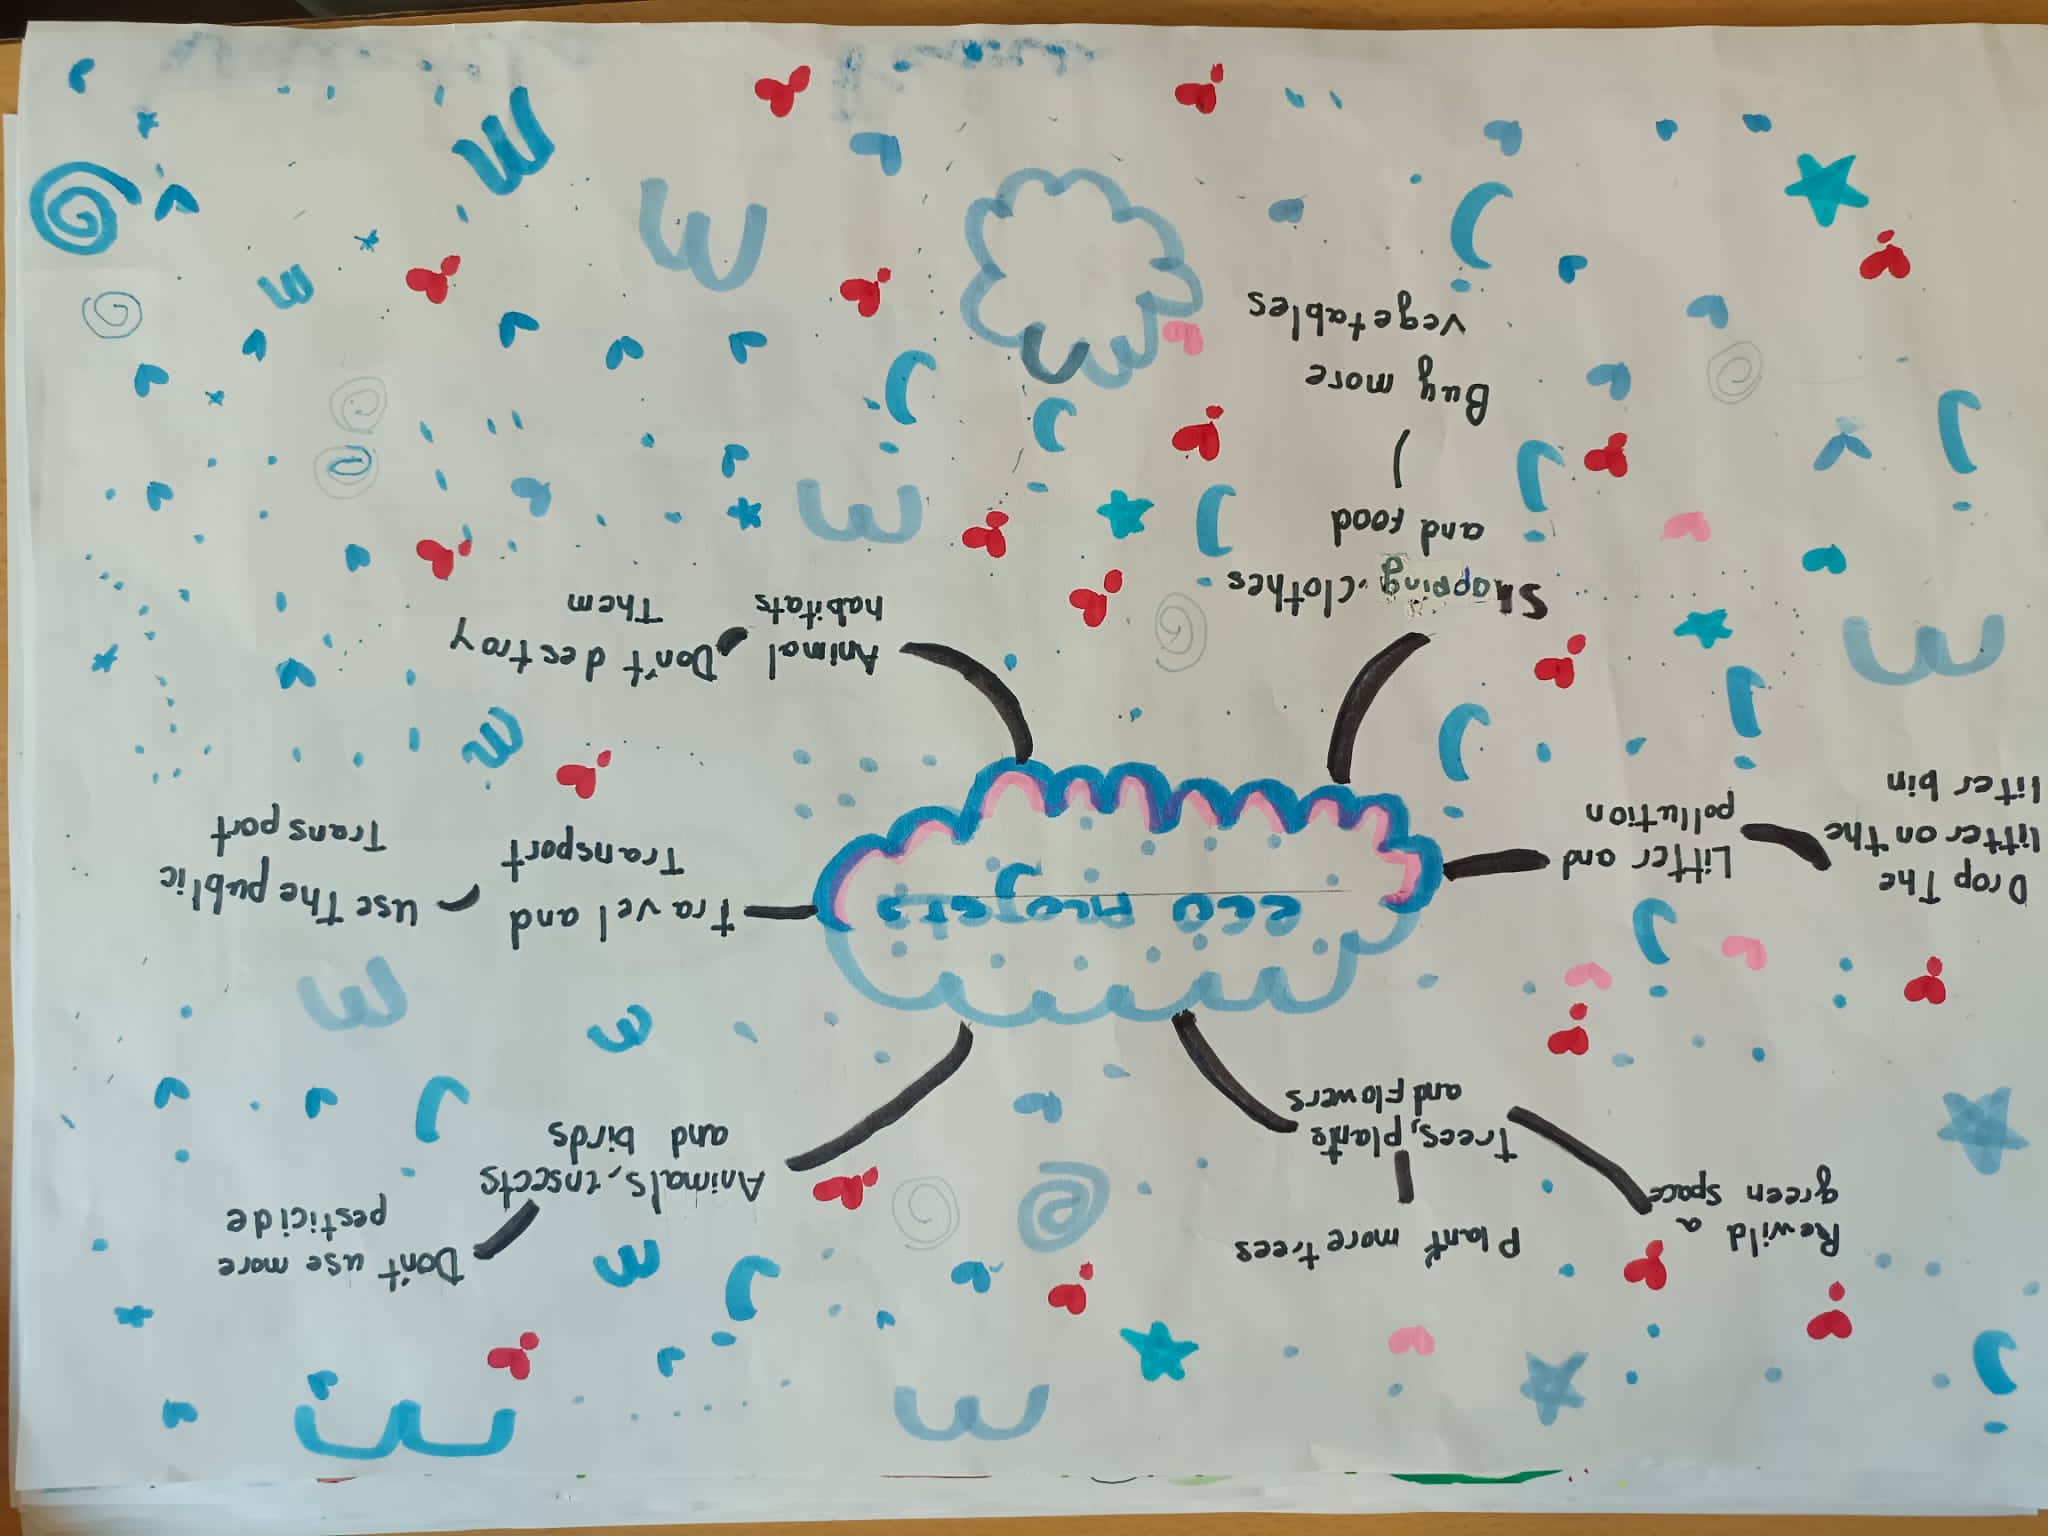 Rewild a
green space
Plant more trees
Don't use more
pesticide
Trees, plants
and flowers
Animals, insects
and birds
ECO Projects
Drop The
litter on the
liter bin
Litter and
pollution
Travel and
Transport
use The public
Transport
Shopping. clothes
and food
Buy more
vegetables
Animal
habitats
Don't destroy
Them